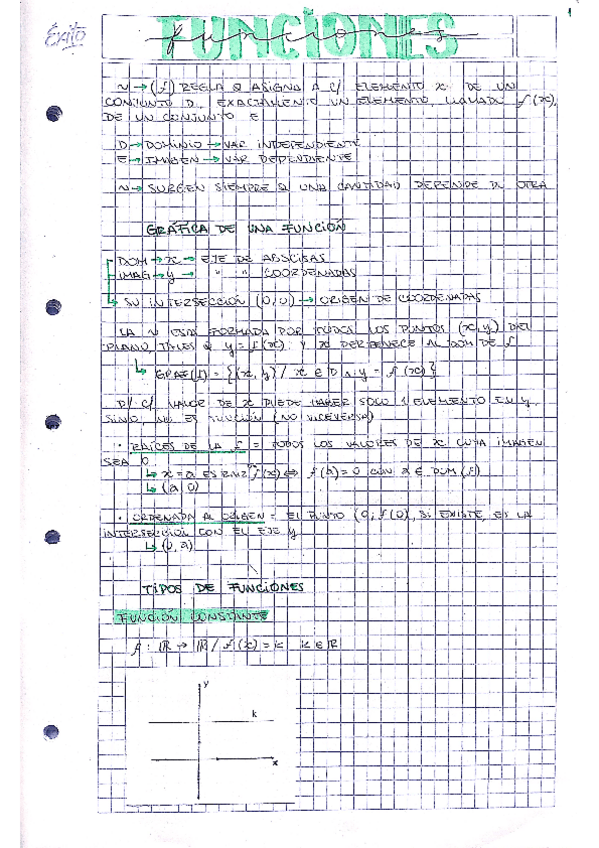 1
Éxito
FUNCIONES
funciones
N → (f) REGLA Q ASIGNA A C/ ELEMENTO x DE UN
CONJUNTO D, EXACTAMENTE UN ELEMENTO, LLAMADO f(x),
DE UN CONJUNTO E
D → DOMINIO → VAR INDEPENDIENTE
E → IMAGEN → VAR DEPENDIENTE
N → SURGEN SIEMPRE Q UNA CANTIDAD DEPENDE D OTRA
GRÁFICA DE UNA FUNCIÓN
DOM → x → EJE DE ABSCISAS
IMAG → y → " " COORDENADAS
SU INTERSECCIÓN (0,0) → ORIGEN DE COORDENADAS
LA N ESTÁ FORMADA POR TODOS LOS PUNTOS (x,y) DEL
PLANO, TALES Q y = f(x) Y x PERTENECE AL DOM DE f
GRAF(f) = {(x, y) / x ∈ D ∧ y = f(x)}
P/ C/ VALOR DE x PUEDE HABER SOLO 1 ELEMENTO EN y,
SINO, NO ES FUNCIÓN (NO VICEVERSA)
• RAÍCES DE LA f = TODOS LOS VALORES DE x CUYA IMAGEN
SEA 0
x = a ES RAIZ f(x) ⇔ f(a) = 0 CON a ∈ DOM(f)
(a, 0)
• ORDENADA AL ORIGEN = EL PUNTO (0, f(0)), SI EXISTE, ES LA
INTERSECCIÓN CON EL EJE y
(0, a)
TIPOS DE FUNCIONES
FUNCIÓN CONSTANTE
f: ℝ → ℝ / f(x) = k k ∈ ℝ
y
k
x